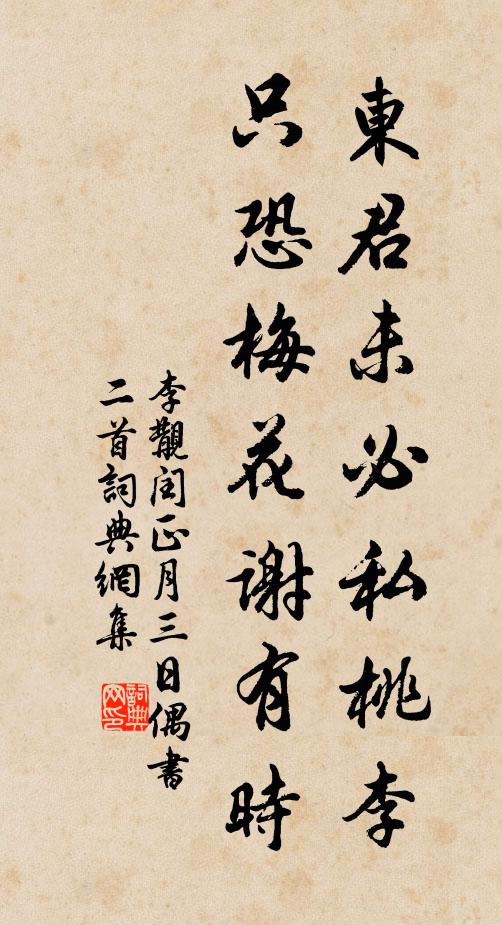 東君未必私桃李
只恐梅花謝有時
李觀閏正月三日偶書
二首詞典網集
詞典
网印